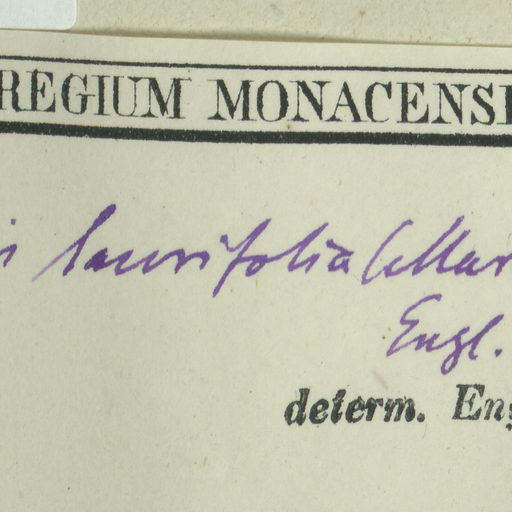 REGIUM MONACENS
laurifolia (Mar
Engl.
determ. Eng